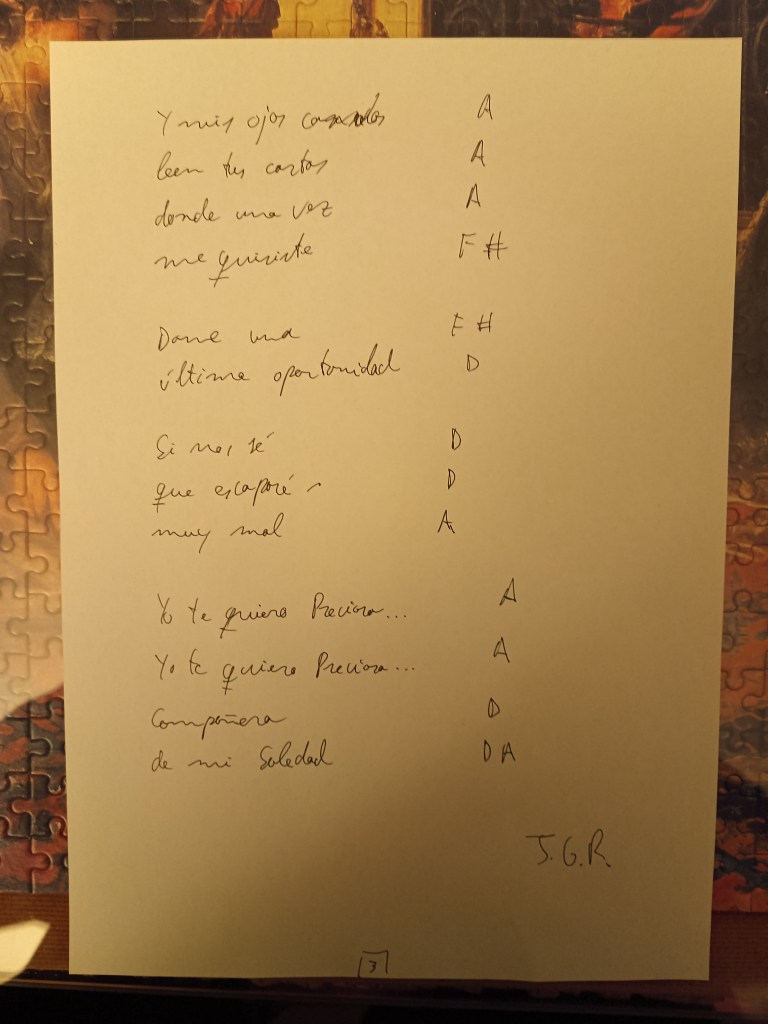 Y mis ojos cansados A
leen tus cartas A
donde una vez A
me quisiste F#
Dame una F#
última oportunidad D
Si no, sé D
que escaparé D
muy mal A
Yo te quiero Preciosa... A
Yo te quiero Preciosa... A
Compañera D
de mi Soledad D A
J.G.R.
3